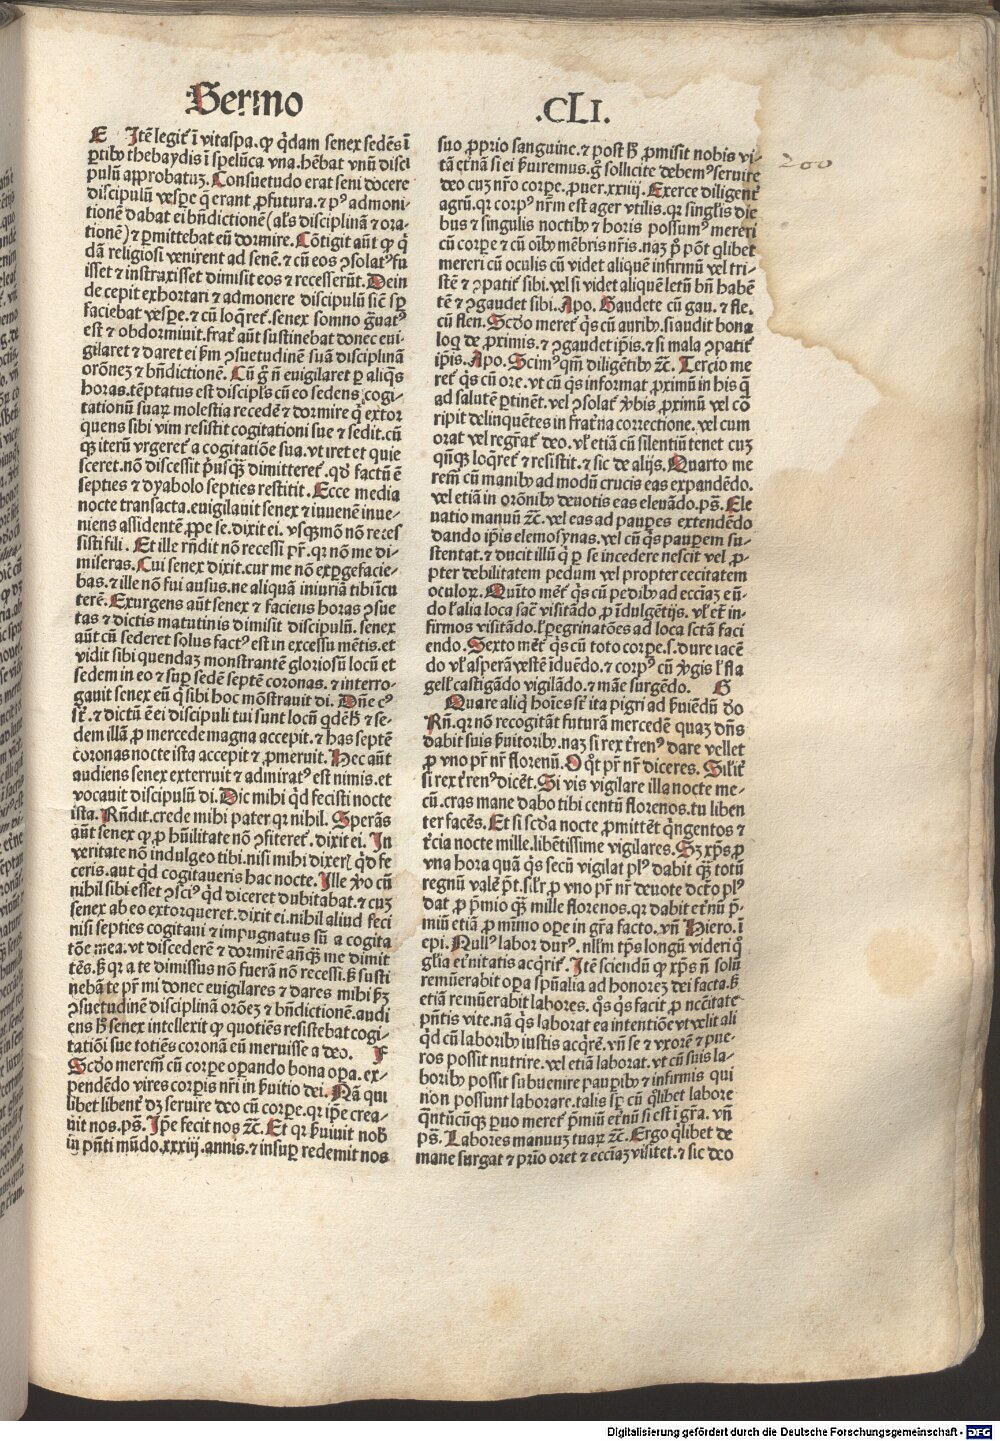 Sermo .CLI.
200
E Jtē legit̄ ī vitaspa. qꝙ q̇dam senex sedēs ī
ꝑtibꝰ thebaydis ī spelūca vna. hēbat vnū disci
pulū approbatuꝫ. Consuetudo erat seni docere
discipulū vesꝑe q̄ erant ꝓfutura. ⁊ pꝰ admoni-
tionē dabat ei bn̄dictionē (al's disciplinā ⁊ ora-
tionē) ⁊ ꝑmittebat eū dormire. Cōtigit aūt ꝙ q̇
dā religiosi venirent ad senē. ⁊ cū eos ꝯsolatꝰ fu
isset ⁊ instraxisset dimisit eos ⁊ recesserūt. Dein
de cepit exhortari ⁊ admonere discipulū siē sp̄
faciebat vesꝑe. ⁊ cū loq̄ret̄. senex somno g̊uatꝰ
est ⁊ obdormiuit. frat̄ aūt sustinebat donec eui-
gilaret ⁊ daret ei ẜm ꝯsuetudinē suā disciplinā
orōneꝫ ⁊ bn̄dictionē. Cū g̊ n̄ euigilaret ꝑ aliq̄s
horas. tēptatus est discipl's cū eo sedens cogi-
tationū suaꝝ molestia recedē ⁊ dormire q̄ extor
quens sibi vim resistit cogitationi sue ⁊ sedit. cū
qꝫ iterū vrgeret̄ a cogitatiōe sua. vt iret et quie
sceret. nō discessit p̄usqꝫ dimitteret̄. qḋ factū ē
septies ⁊ dyabolo septies restitit. Ecce media
nocte transacta. euigilauit senex ⁊ inuenē inue-
niens assidentē ꝓpe se. dixit ei. vsqꝫmō nō reces
sisti fili. Et ille rn̄dit nō recessi pr̄. qr nō me di-
miseras. Cui senex dixit. cur me nō exꝑgefacie-
bas. ⁊ ille nō fui ausus. ne aliquā iniuriā tibi īcu
terē. Exurgens aūt senex ⁊ faciens horas ꝯsue
tas ⁊ dictis matutinis dimisit discipulū. senex
aūt cū sederet solus factꝰ est in excessu mētis. et
vidit sibi quendaꝫ monstrantē gloriosū locū et
sedem in eo ⁊ suꝑ sedē septē coronas. ⁊ interro-
gauit senex eū q̇ sibi hoc mōstrauit di. Dn̄e cꝰ
st̄. ⁊ dictū ē ei discipuli tui sunt locū q̇dē hꝫ ⁊ se-
dem illā ꝓ mercede magna accepit. ⁊ has septē
coronas nocte ista accepit ⁊ ꝓmeruit. Hec aūt
audiens senex exterruit ⁊ admiratꝰ est nimis. et
vocauit discipulū di. Dic mihi q̇d fecisti nocte
ista. Rn̄dit. crede mihi pater qr nihil. Sperās
aūt senex ꝙ ꝓ hūilitate nō ꝯfiteret̄. dixit ei. Jn
veritate nō indulgeo tibi. nisi mihi dixeriꝭ q̇d fe
ceris. aut q̇d cogitaueris hac nocte. Jlle v̊o cū
nihil sibi esset ꝯsciꝰ q̇d diceret dubitabat. ⁊ cuꝫ
senex ab eo extorqueret. dixit ei. nihil aliud feci
nisi septies cogitani ⁊ impugnatus sū a cogita
tōe mea. vt discederē ⁊ dormirē anq̄ꝫ me dimit
tēs. ẜ qr a te dimissus nō fuerā nō recessi. ẜ susti
nebā te pr̄ mi donec euigilares ⁊ dares mihi ẜꝫ
ꝯsuetudinē disciplinā orōeꝫ ⁊ bn̄dictionē. audi
ens hꝫ senex intellexit ꝙ quotiēs resistebat cogi-
tatiōi sue totiēs coronā eū meruisse a deo. F
Scḋo merem̄ cū corpe oꝑando bona oꝑa. ex-
pendēdo vires corꝑis nr̄i in ẜuitio dei. Nā qui
libet libent̄ dꝫ seruire deo cū corꝑe. qr ip̄e crea-
uit nos. ps̄. Jp̄e fecit nos ⁊c̄. Et qr ẜuiuit nob̄
in pn̄ti mūdo. xxxiij. annis. ⁊ insuꝑ redemit nos
suo ꝓprio sanguine. ⁊ post hꝫ ꝓmisit nobis vi-
tā et̄nā si ei ẜuiremus. g̊ sollicite debemꝰ seruire
deo cuꝫ nr̄o corꝑe. ꝓuer. xxiij. Exerce diligent̄
agrū. qr corpꝰ nr̄m est ager vtilis. qr singl'is die
bus ⁊ singulis noctibꝰ ⁊ horis possumꝰ mereri
cū corꝑe ⁊ cū oībꝰ mēbris nr̄is. naꝫ p̊ pōt q̇libet
mereri cū oculis cū videt aliquē infirmū vel tri-
stē ⁊ ꝯpatit̄ sibi. vel si videt aliquē letū bn̄ habē
tē ⁊ ꝯgaudet sibi. Apo. Gaudete cū gau. ⁊ fle.
cū flen. Scḋo meret̄ q̇s cū auribꝰ. si audit bona
loq̇ de ꝓximis. ⁊ ꝯgaudet ip̄is. ⁊ si mala ꝯpatit̄
ip̄is. Apo. Scimꝰ qm̄ diligētibꝰ ⁊c̄. Tercio me
ret̄ q̇s cū ore. vt cū q̇s informat ꝓximū in his q̄
ad salutē ꝑtinēt. vel ꝯsolat̄ v̊bis ꝓximū vel cō
ripit delinquētes in frat̄na correctione. vel cum
orat vel regr̄at̄ deo. vl̄ etiā cū silentiū tenet cuꝫ
qn̄qꝫ loq̄ret̄ ⁊ resistit. ⁊ sic de alijs. Quarto me
rem̄ cū manibꝰ ad modū crucis eas expandēdo.
vel etiā in orōnibꝰ deuotis eas eleuādo. ps̄. Ele
uatio manuū ⁊c̄. vel eas ad pauꝑes extendēdo
dando ip̄is elemosynas. vel cū q̇s pauꝑem su-
stentat. ⁊ ducit illū q̇ ꝑ se incedere nescit vel ꝓ-
pter debilitatem pedum vel propter cecitatem
oculoꝝ. Quīto meret̄ q̇s cū pedibꝰ ad eccīaꝫ eū-
do l' alia loca sac̄ visitādo. ꝓ īdulgētijs. vl̄ et̄ in-
firmos visitādo. l' ꝑegrinatōes ad loca sctā faci
endo. Sexto meret̄ q̇s cū toto corꝑe. s. dure iacē
do vl̄ asperā vestē īduēdo. ⁊ corpꝰ cū v̊gis l' fla
gell' castigādo vigilādo. ⁊ mane surgēdo. G
Quare aliq̇ hoīes st̄ ita pigri ad ẜuiēdū deo
Rn̄. qr nō recogitāt futurā mercedē quaꝫ dn̄s
dabit suis ẜuitoribꝰ. naꝫ si rex t̄renꝰ dare vellet
ꝓ vno pr̄ nr̄ florenū. O q̇t pr̄ nr̄ diceres. Sil'it̄
si rex t̄renꝰ dicēt. Si vis vigilare illa nocte me-
cū. cras mane dabo tibi centū florenos. tu liben
ter facēs. Et si scḋa nocte ꝓmittēt q̇ngentos ⁊
t̄cia nocte mille. libētissime vigilares. Sꝫ xp̄s ꝓ
vna hora quā q̇s secū vigilat plꝰ dabit qꝫ totū
regnū valē p̄t. sil'r ꝓ vno pr̄ nr̄ deuote dicto plꝰ
dat ꝓ p̄mio qꝫ mille florenos. qr dabit et̄nū p̄-
miū etiā ꝓ mīmo oꝑe in gr̄a facto. vn̄ Hiero. ī
epi. Nullꝰ labor durꝰ. nll'm tp̄s longū videri q̇
gl'ia et̄nitatis acq̇rit̄. Jtē sciendū ꝙ xp̄s n̄ solū
remūerabit oꝑa spūalia ad honoreꝫ dei facta. ẜ
etiā remūerabit labores. q̇s q̇s facit ꝓ ncc̄itate
pn̄tis vite. nā q̇s laborat ea intentiōe vt velit ali
q̇d cū laboribꝰ iustis acq̇rē. vn̄ se ⁊ vxorē ⁊ pue-
ros possit nutrire. vel etiā laborat. vt cū suis la-
boribꝰ possit subuenire pauꝑibꝰ ⁊ infirmis qui
non possunt laborare. talis sꝑ cū q̇libet labore
q̄ntūcūqꝫ ꝑuo meret̄ p̄miū et̄nū si est ī gr̄a. vn̄
ps̄. Labores manuuꝫ tuaꝝ ⁊c̄. Ergo q̇libet de
mane surgat ⁊ prīo oret ⁊ eccīaꝫ visitet. ⁊ sic deo
Digitalisierung gefördert durch die Deutsche Forschungsgemeinschaft - DFG